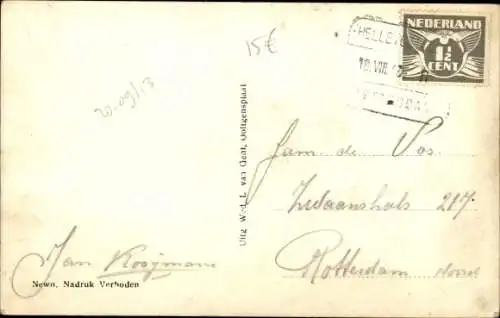 15€
20-09/13
NEDERLAND
1½
CENT
HELLEV
Uitg Wed. L. van Gent, Ooltgensplaat
Fam. de Vos.
Zwaanshals 217
Rotterdam noord
Jan Kooijmans
Newo, Nadruk Verboden